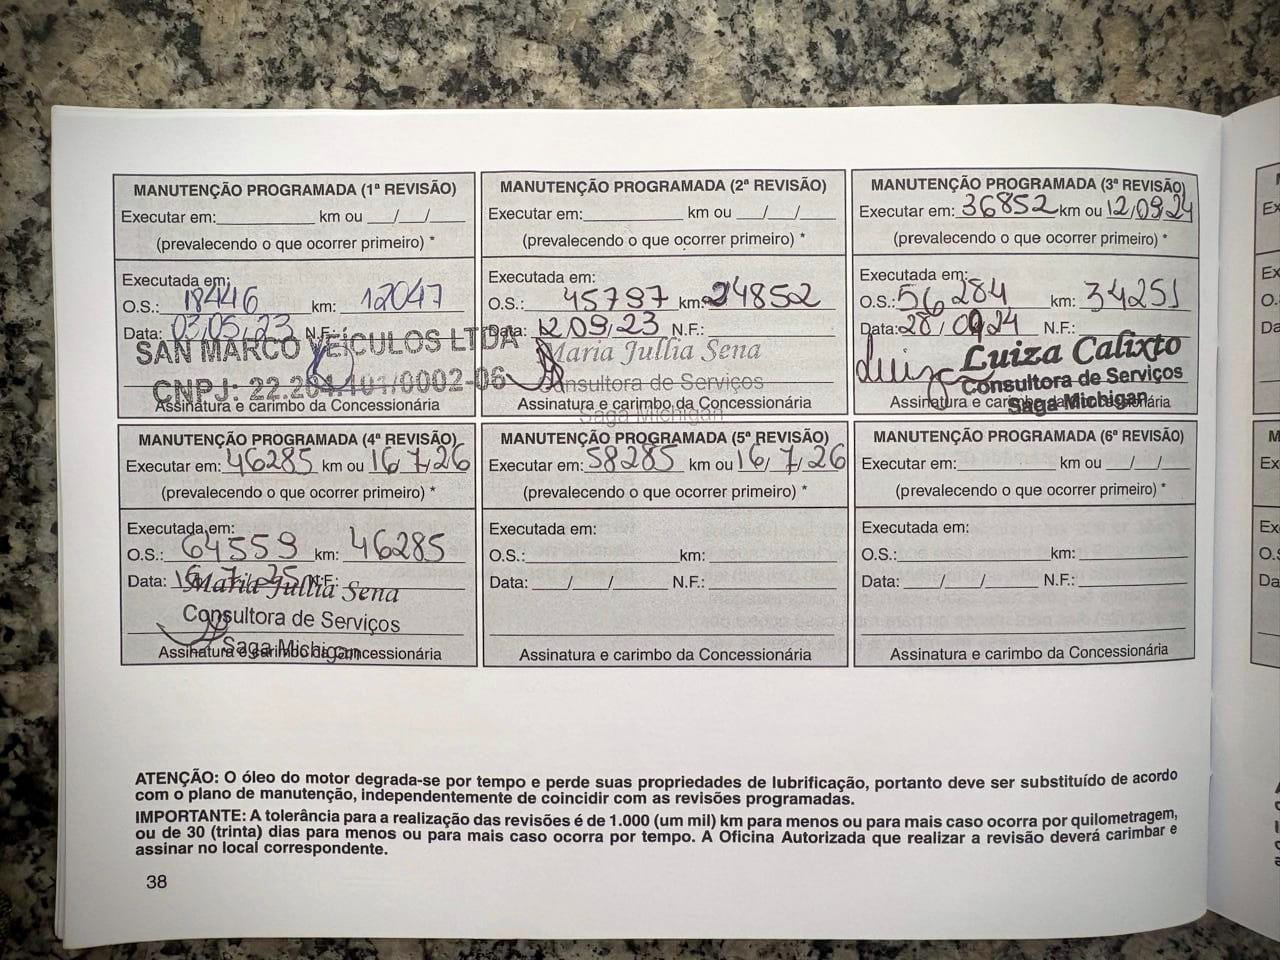 MANUTENÇÃO PROGRAMADA (1ª REVISÃO)
Executar em:____________ km ou ___/___/____
(prevalecendo o que ocorrer primeiro) *
Executada em:
O.S.: 18446 km: 12047
Data: 03/05/23 N.F.:
SAN MARCO VEÍCULOS LTDA
CNPJ: 22.264.101/0002-06
Assinatura e carimbo da Concessionária
MANUTENÇÃO PROGRAMADA (2ª REVISÃO)
Executar em:____________ km ou ___/___/____
(prevalecendo o que ocorrer primeiro) *
Executada em:
O.S.: 45797 km: 24852
Data: 12/09/23 N.F.:
Maria Jullia Sena
Consultora de Serviços
Saga Michigan
Assinatura e carimbo da Concessionária
MANUTENÇÃO PROGRAMADA (3ª REVISÃO)
Executar em: 36852 km ou 12/09/24
(prevalecendo o que ocorrer primeiro) *
Executada em:
O.S.: 56284 km: 34251
Data: 28/09/24 N.F.:
Luiza Calixto
Consultora de Serviços
Saga Michigan
Assinatura e carimbo da Concessionária
MANUTENÇÃO PROGRAMADA (4ª REVISÃO)
Executar em: 46285 km ou 16/7/26
(prevalecendo o que ocorrer primeiro) *
Executada em:
O.S.: 64559 km: 46285
Data: 16/7/25 N.F.:
Maria Jullia Sena
Consultora de Serviços
Saga Michigan
Assinatura e carimbo da Concessionária
MANUTENÇÃO PROGRAMADA (5ª REVISÃO)
Executar em: 58285 km ou 16/7/26
(prevalecendo o que ocorrer primeiro) *
Executada em:
O.S.:____________ km:____________
Data: ____/____/____ N.F.:____________
Assinatura e carimbo da Concessionária
MANUTENÇÃO PROGRAMADA (6ª REVISÃO)
Executar em:____________ km ou ___/___/____
(prevalecendo o que ocorrer primeiro) *
Executada em:
O.S.:____________ km:____________
Data: ____/____/____ N.F.:____________
Assinatura e carimbo da Concessionária
ATENÇÃO: O óleo do motor degrada-se por tempo e perde suas propriedades de lubrificação, portanto deve ser substituído de acordo
com o plano de manutenção, independentemente de coincidir com as revisões programadas.
IMPORTANTE: A tolerância para a realização das revisões é de 1.000 (um mil) km para menos ou para mais caso ocorra por quilometragem,
ou de 30 (trinta) dias para menos ou para mais caso ocorra por tempo. A Oficina Autorizada que realizar a revisão deverá carimbar e
assinar no local correspondente.
38